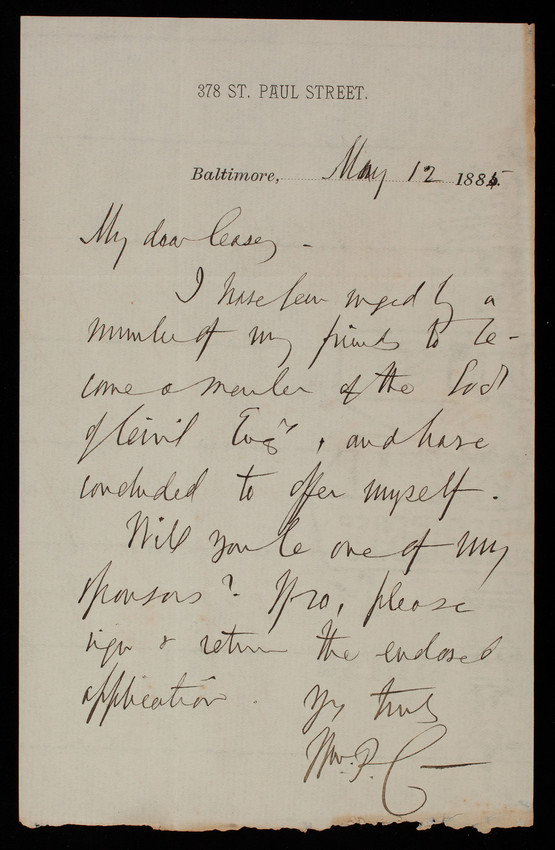 378 ST. PAUL STREET.
Baltimore, May 12 1885.
My dear Casey -
I have been urged by a
number of my friends to be-
come a member of the Soc
of Civil Engrs, and have
concluded to offer myself.
Will you be one of my
sponsors? If so, please
sign & return the enclosed
application.
Yrs truly
Wm. P. C